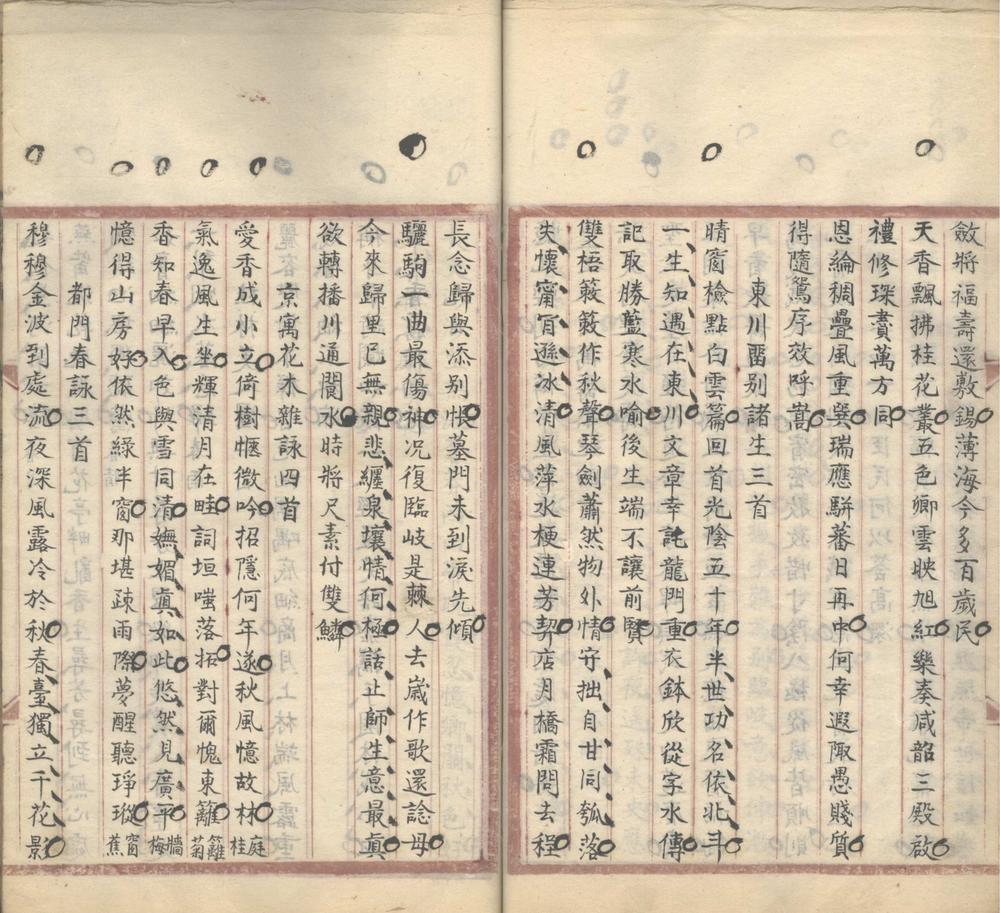 斂將福壽還敷錫薄海今多百歲民
天香飄拂桂花叢五色卿雲映旭紅樂奏咸韶三殿啟
禮修琛賮萬方同
恩綸稠疊風重㢲瑞應駢蕃日再中何幸遐陬愚賤質
得隨鴛序效呼嵩
東川畱别諸生三首
晴窗檢點白雲篇回首光陰五十年半世功名依北斗
一生知遇在東川文章幸託龍門重衣鉢欣從字水傳
記取勝藍寒水喻後生端不讓前賢
雙梧簌簌作秋聲琴劍蕭然物外情守拙自甘同瓠落
失懷甯肎遜冰清風萍水梗連芳契店月橋霜問去程
長念歸與添别悵墓門未到淚先傾
驪駒一曲最傷神况復臨岐是棘人去嵗作歌還諗母
今來歸里已無親悲纏泉壤情何極話止師生意最眞
欲轉播川通閬水時將尺素付雙鱗
京寓花木雜詠四首
愛香成小立倚樹惬微吟招隱何年遂秋風憶故林庭桂
氣逸風生坐輝清月在畦詞垣嗤落拓對爾愧東籬籬菊
香知春早入色與雪同清嫵媚眞如此悠然見廣平牆梅
憶得山房好依然綠半窗那堪疎雨際夢醒聽琤瑽窗蕉
都門春詠三首
穆穆金波到處流夜深風露冷於秋春臺獨立千花影